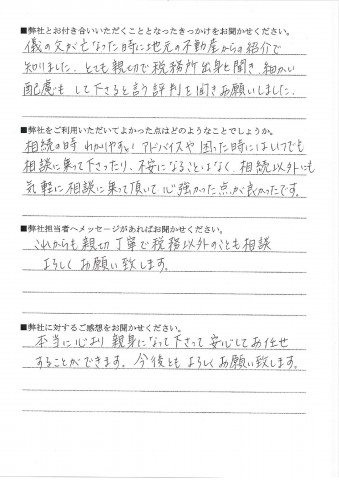 ■弊社とお付き合いいただくこととなったきっかけをお聞かせください。
儀の父が亡なった時に地元の不動産からの紹介で
知りました。とても親切で税務所出身と聞き、細かい
配慮も して下さると言う評判を聞きお願いしました。
■弊社をご利用いただいてよかった点はどのようなことでしょうか。
相続の時 わかりやすい アドバイスや 困った時にはいつでも
相談に乗って下さったり、不安になることはなく、相続以外にも
気軽に相談に乗って頂いて 心強かった点が良かったです。
■弊社担当者へメッセージがあればお聞かせください。
これからも 親切 丁寧で税務以外のことも相談
よろしく お願い致します。
■弊社に対するご感想をお聞かせください。
本当に心より 親身になって下さって 安心してお任せ
することができます。今後とも よろしくお願い致します。